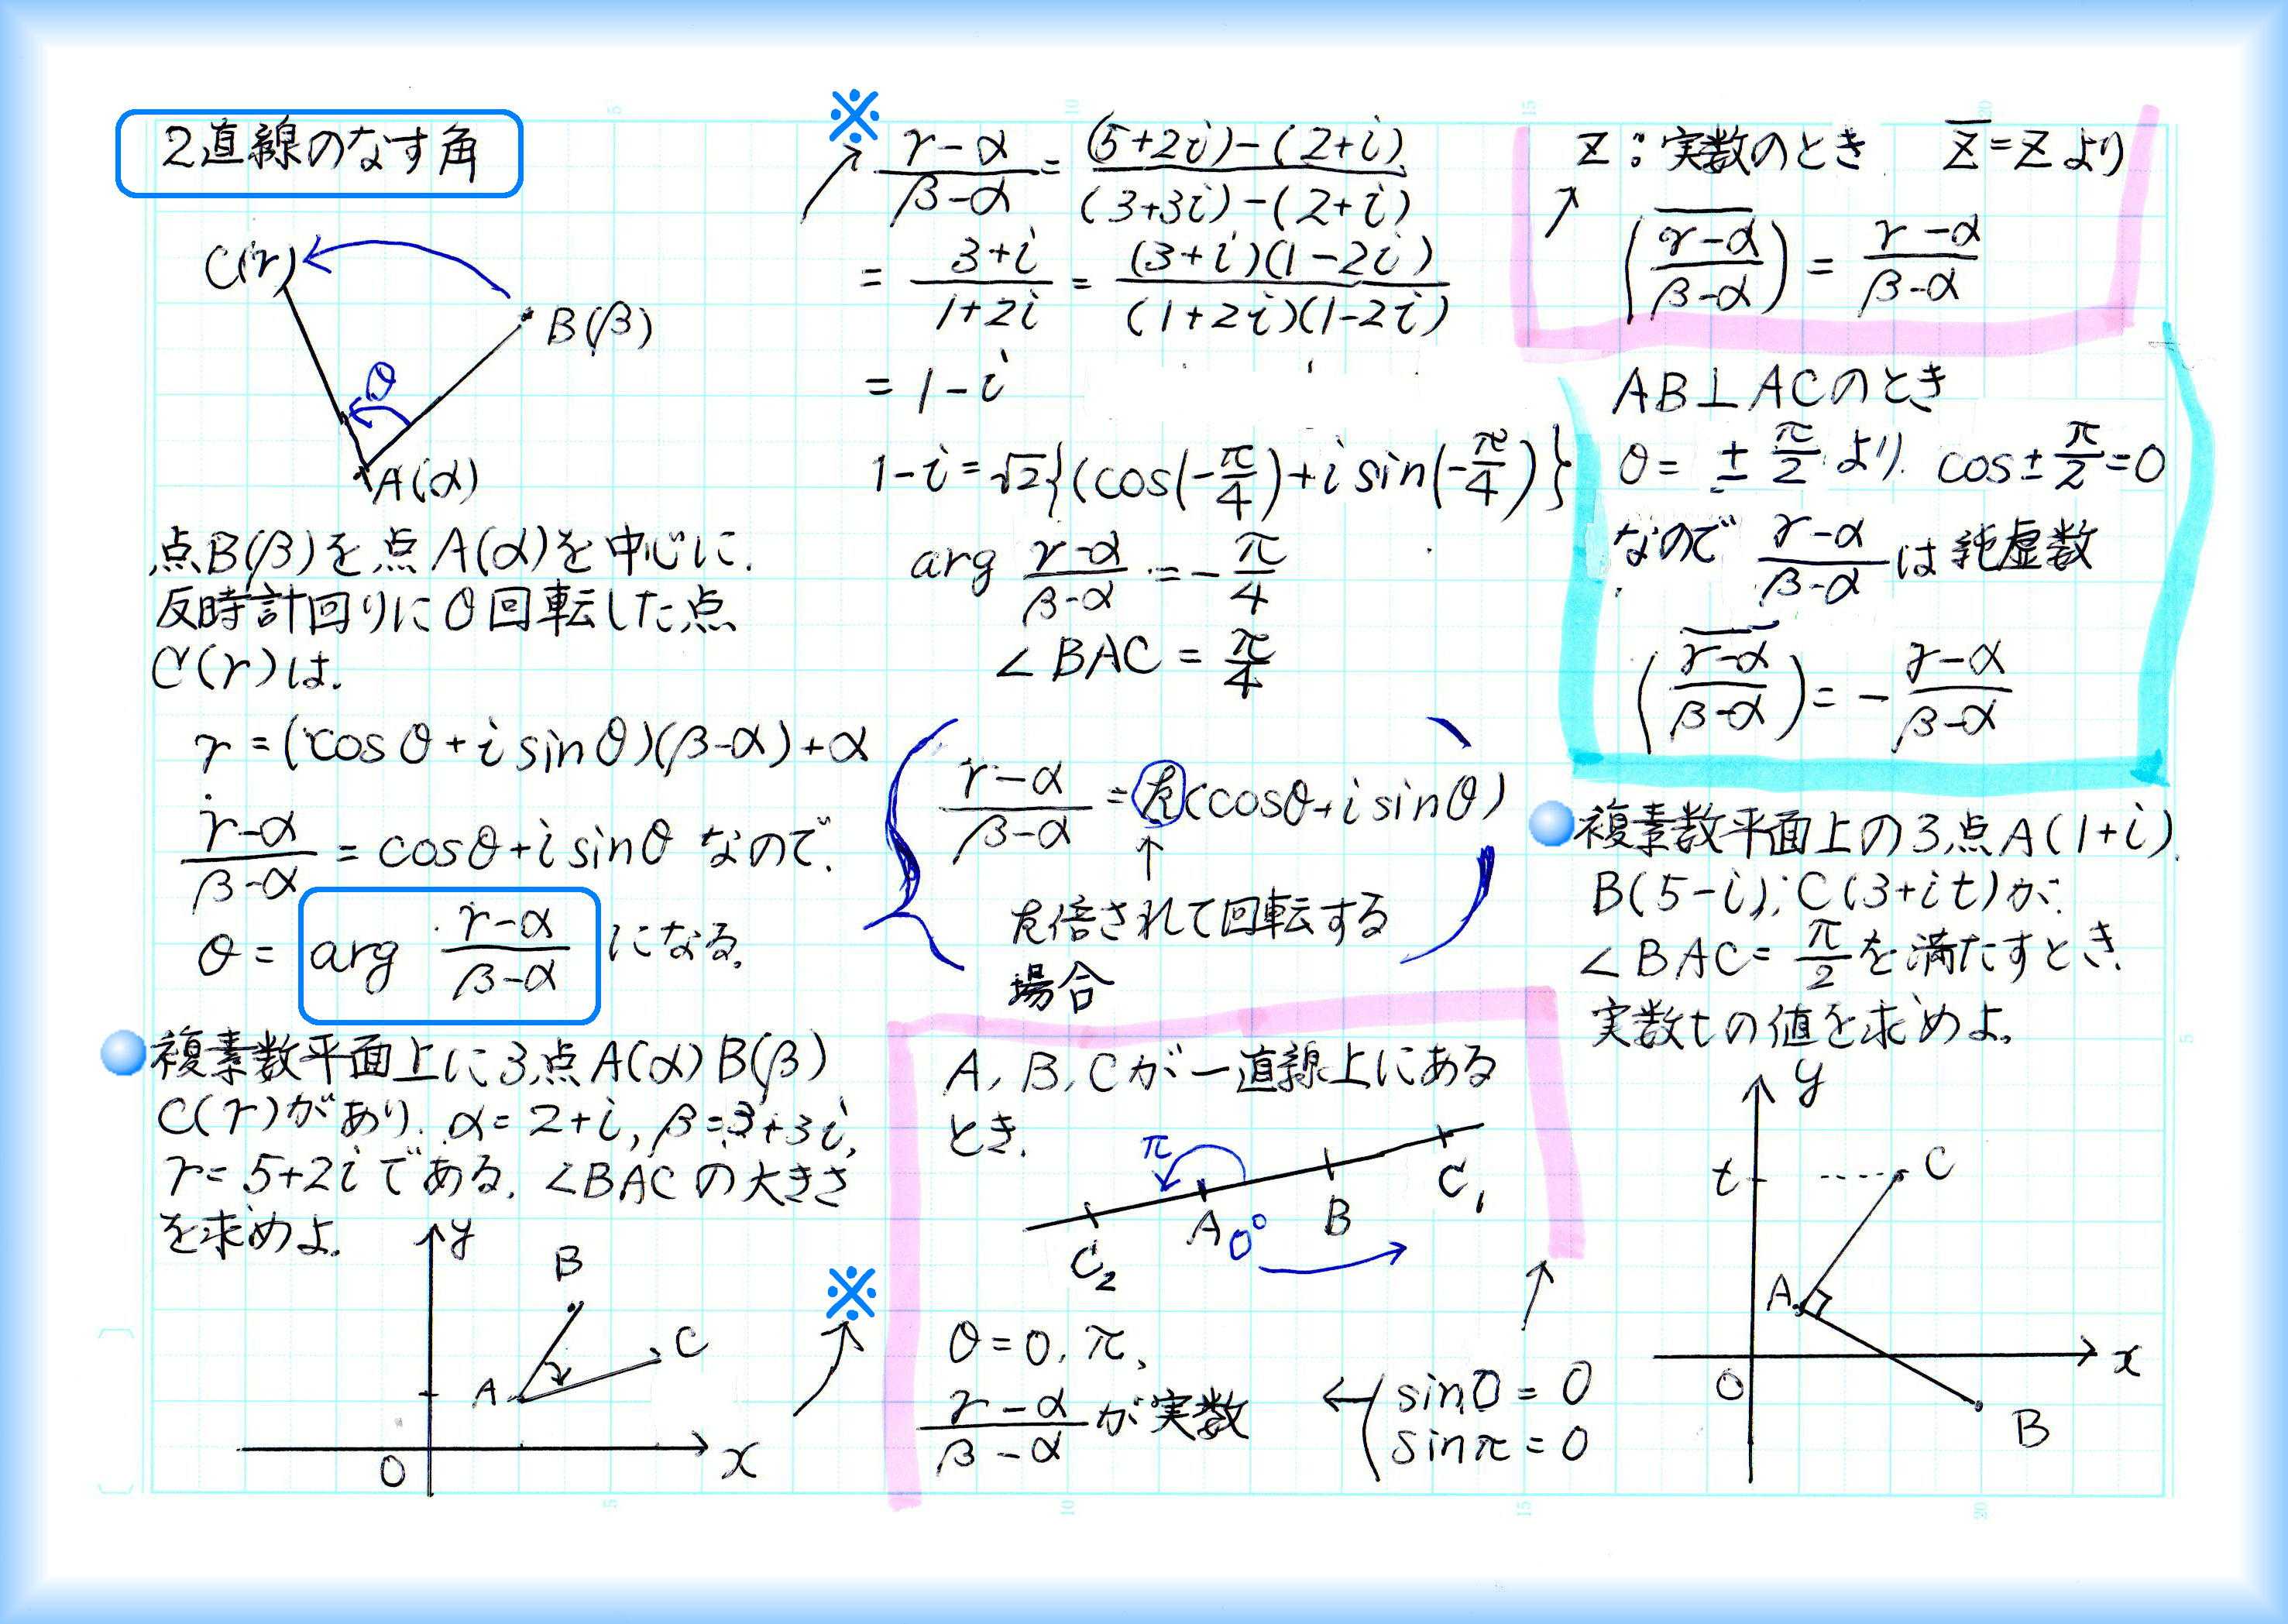 2直線のなす角
C(γ)
B(β)
θ
A(α)
点B(β)を点A(α)を中心に、
反時計回りにθ回転した点
C(γ)は、
γ=(cosθ+i sinθ)(β-α)+α
(γ-α)/(β-α) = cosθ+i sinθ なので、
θ= arg (γ-α)/(β-α) になる。
複素数平面上に3点A(α) B(β)
C(γ)があり、α=2+i, β=3+3i,
γ=5+2iである。∠BACの大きさ
を求めよ。
y
B
C
A
O
x
※
※
(γ-α)/(β-α) = ((5+2i)-(2+i))/((3+3i)-(2+i))
= (3+i)/(1+2i) = ((3+i)(1-2i))/((1+2i)(1-2i))
= 1-i
1-i=√2{(cos(-π/4)+i sin(-π/4)}
arg (γ-α)/(β-α) = -π/4
∠BAC = π/4
(γ-α)/(β-α) = k(cosθ+i sinθ)
↑
k倍されて回転する
場合
A, B, Cが一直線上にある
とき、
π
C₂
A
0°
B
C₁
θ=0, π、
(γ-α)/(β-α) が実数
← sin0 = 0
sinπ = 0
z:実数のとき z̅=zより
\overline{((γ-α)/(β-α))} = (γ-α)/(β-α)
AB⊥ACのとき
θ= ±π/2 より、cos±π/2=0
なので (γ-α)/(β-α) は純虚数
\overline{((γ-α)/(β-α))} = -(γ-α)/(β-α)
複素数平面上の3点A(1+i),
B(5-i), C(3+it)が、
∠BAC= π/2 を満たすとき、
実数tの値を求めよ。
y
t
C
A
O
x
B